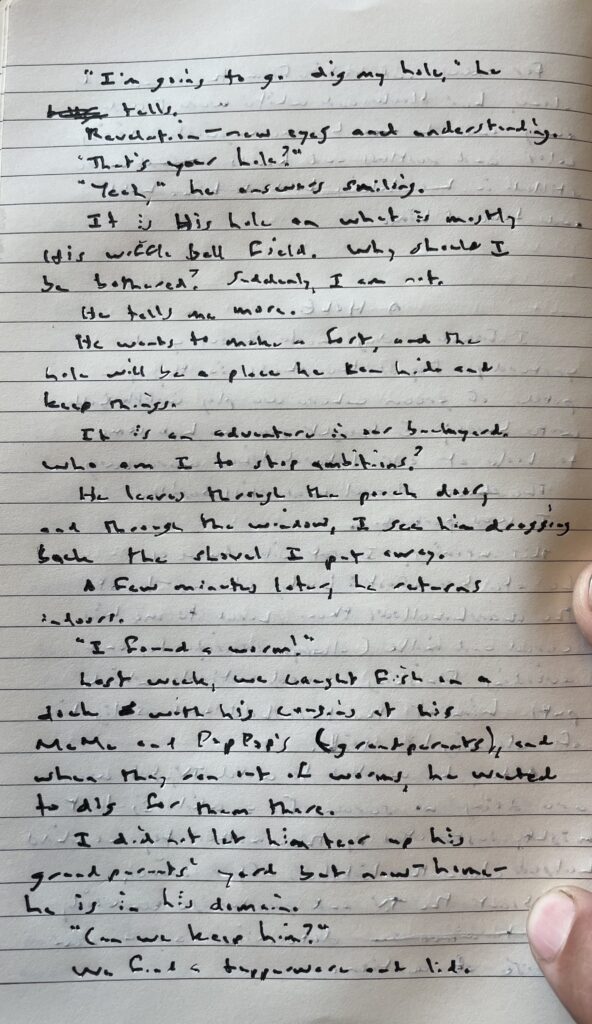 "I'm going to go dig my hole," he
tells.
Revelation - new eyes and understanding.
"That's your hole?"
"Yeah," he answers smiling.
It is His hole on what is mostly
His wiffle ball field. Why should I
be bothered? Suddenly, I am not.
He tells me more.
He wants to make a fort, and the
hole will be a place he can hide and
keep things.
It is an adventure in our backyard.
Who am I to stop ambitions?
He leaves through the porch door,
and through the window, I see him dragging
back the shovel I put away.
A few minutes later, he returns
indoors.
"I found a worm!"
Last week, we caught fish on a
dock with his cousins at his
MeMe and PapPap's (grandparents), and
when they ran out of worms, he wanted
to dig for them there.
I did not let him tear up his
grandparents' yard but now - home -
he is in his domain.
"Can we keep him?"
We find a tupperware and lid.